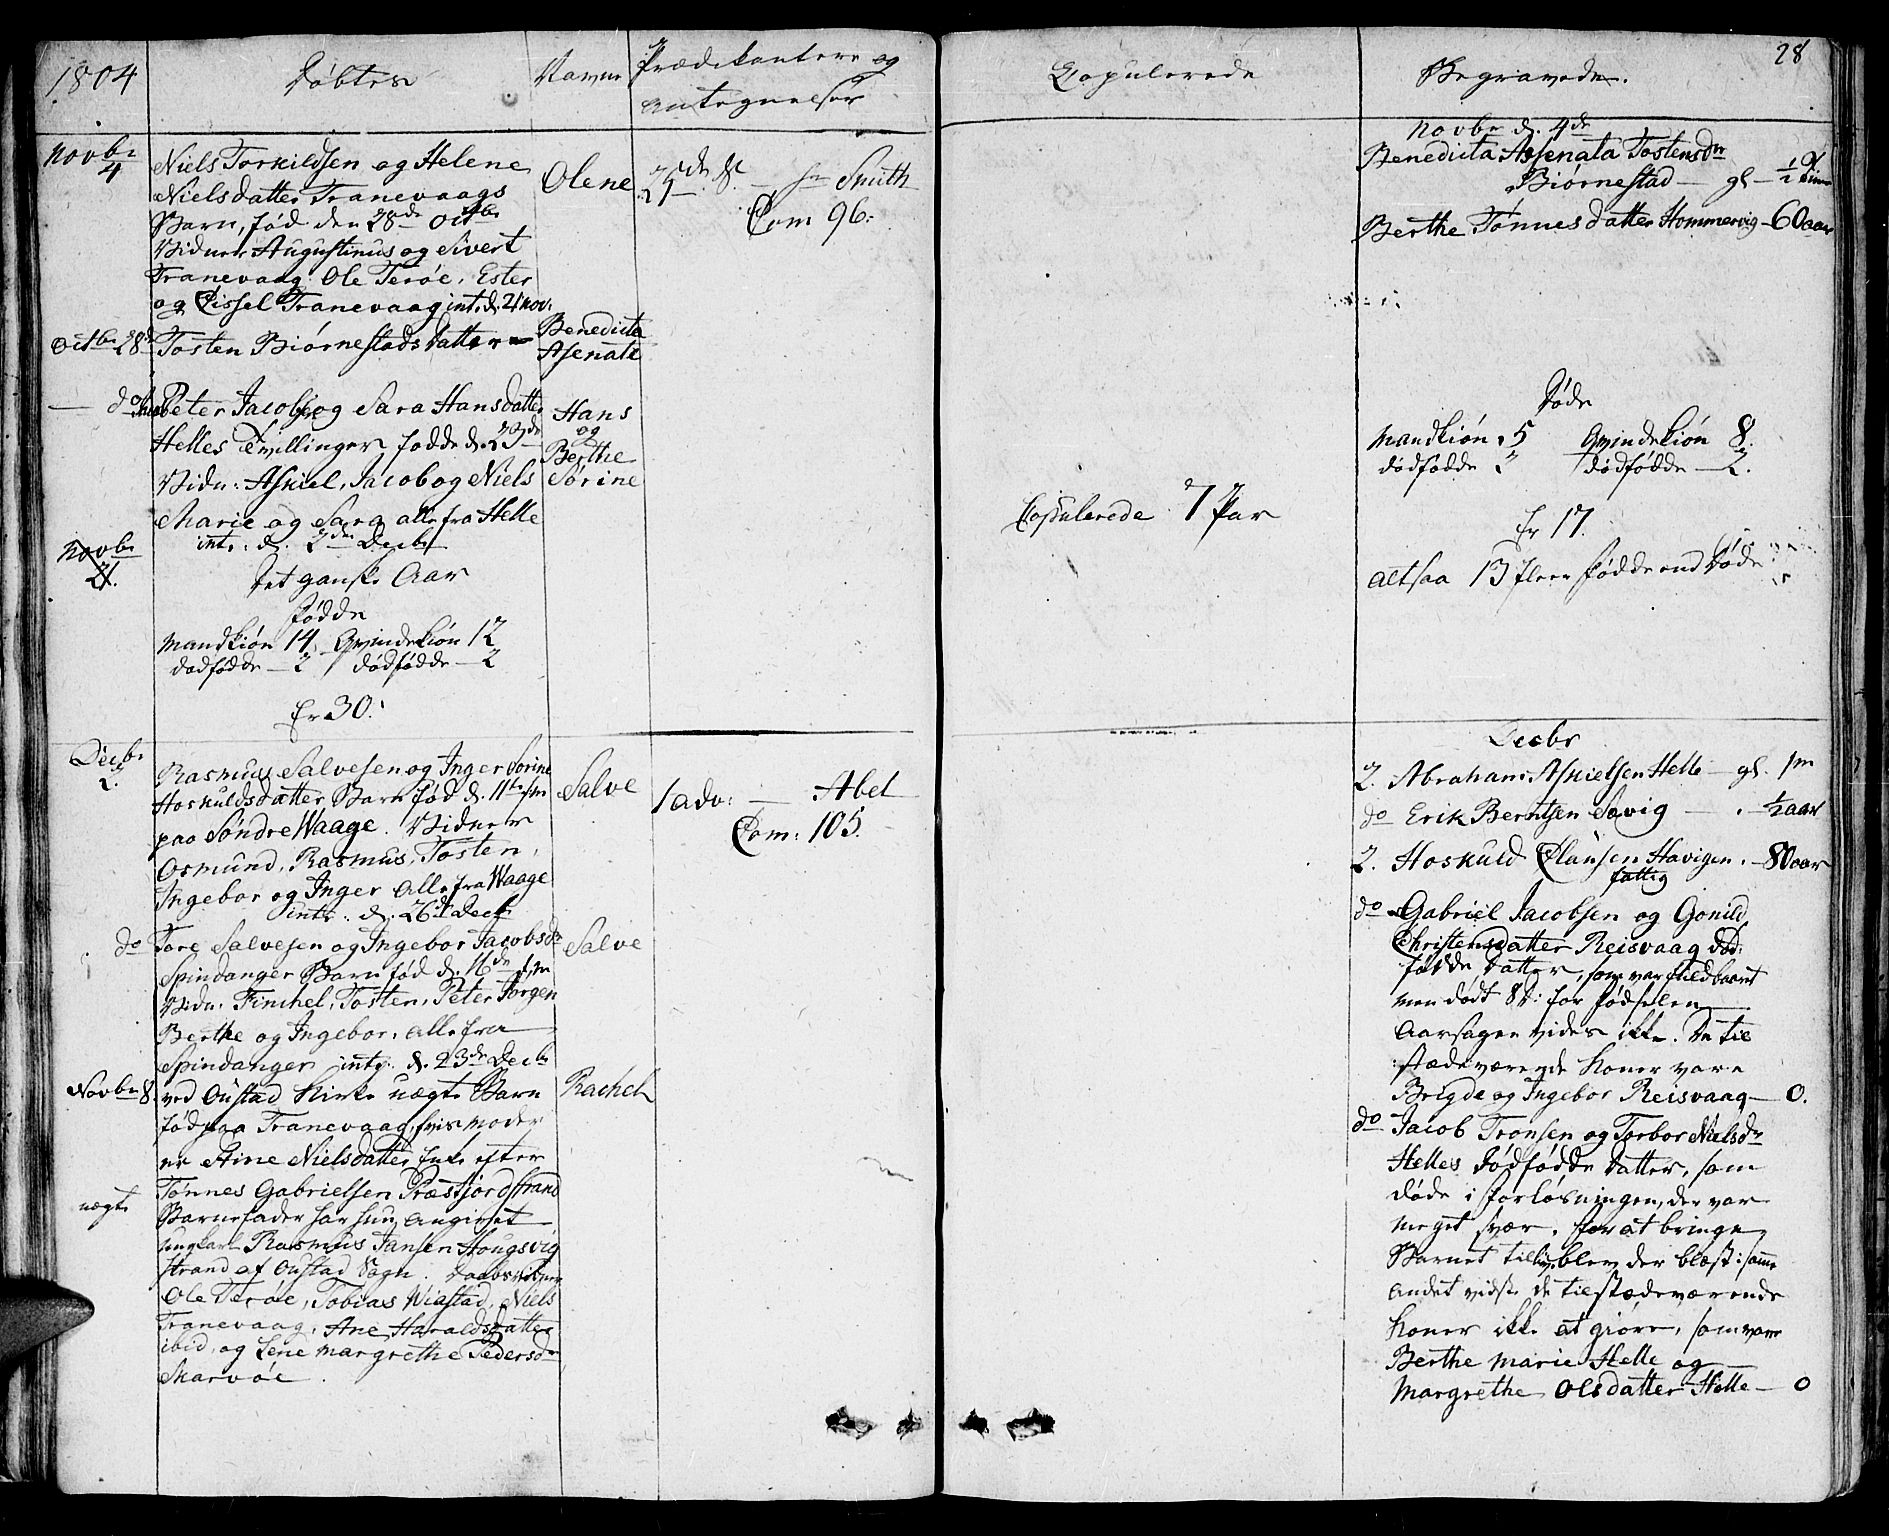 1804
Døbte
Navne
Prædikantere og
Antegnelser
Novbr
4
Niels Torkildsen og Helene
Nielsdatter Tranevaags
Barn, fød den 28de Octbr
Vidner Augustinus og Sivert
Tranevaag. Ole Terøe, Ester
og Cissel Tranevaag int. d. 21 nov.
Olene
25de S. — hr Smith
Com 96:
Octbr 28de
Tosten Biørnestads datter
Benedicta
Asenata
— do
Peter Jacobsen og Sara Hansdatter
Helles Tvillinger, fødde d. 23de
Vidn: Askiel, Jacob og Niels
Marie og Sara alle fra Helle
int: d. 2den Decbr
Hans
og
Berthe
Sørine
Novbr
21.
Det ganske Aar
Fødde
Mandkiøn 14. Qvindekiøn 12
dødfødde — 2 dødfødde — 2
Er 30.
Decbr
2.
Rasmus Salvesen og Inger Sørine
Hoskuldsdatter Barn fød d. 11te hm
paa Søndre Waage. Vidner
Osmund, Rasmus, Tosten,
Ingebor og Inger alle fra Waage
int: d. 26de Decbr
Salve
1 adv: — Abel
Com: 105.
do
Tore Salvesen og Ingebor Jacobsdr
Spindanger Barn fød d. 16de hm
Vidn: Finchel, Tosten, Peter Jørgen
Berthe og Ingebor, alle fra
Spindanger int: d. 23de Decbr
Salve
Novbr 8.
ved Oustad Kirke uægte Barn
fød paa Tranevaag, hvis moder
er Stine Nielsdatter Enke efter
Tønnes Gabrielsen Præstfjordstrand
Barnefader har hun angivet
ungkarl Rasmus Jansen Hougsvig
strand af Oustad Sogn. Daabsvidner
Ole Terøe, Tobias Wiastad, Niels
Tranevaag, Ane Haraldsdatter
ibid, og Lene Margrethe Pedersdr
Skarvøe.
Rachel
uægte
Copulerede
Copulerede 7 Par
28
Begravede.
Novbr d. 4de
Benedicta Assenata Tostensdr
Biørnestad — gl — ½ Time
Berthe Tønnesdatter Hommervig — 60 aar
Døde
Mandkiøn 5 Qvindekiøn 8.
dødfødde 2 dødfødde — 2.
Er 17.
altsaa 13 fleere fødde end Døde
Decbr
2. Abraham Askielsen Helle — gl. 1 m
do Erik Berntsen Søvig — ½ aar
2. Hoskuld Clausen Havigen. — 80 aar
fattig
do Gabriel Jacobsen og Gonild
Christensdatter Reisvaag død:
fødde datter, som var fuldbaaret
men dødt 8 d: for fødselen
Aarsagen vides ikke. De til
stædeværende Koner vare
Brigde og Ingebor Reisvaag — 0.
do Jacob Tronsen og Torbor Nielsdr
Helles dødfødde datter, som
døde i forløsningen, der var
meget svær, for at bringe
Barnet tillive blev der blæst i samme
andet vidste de tilstædeværende
Koner ikke at giøre, som vare
Berthe Marie Helle og
Margrethe Olsdatter Helle — 0